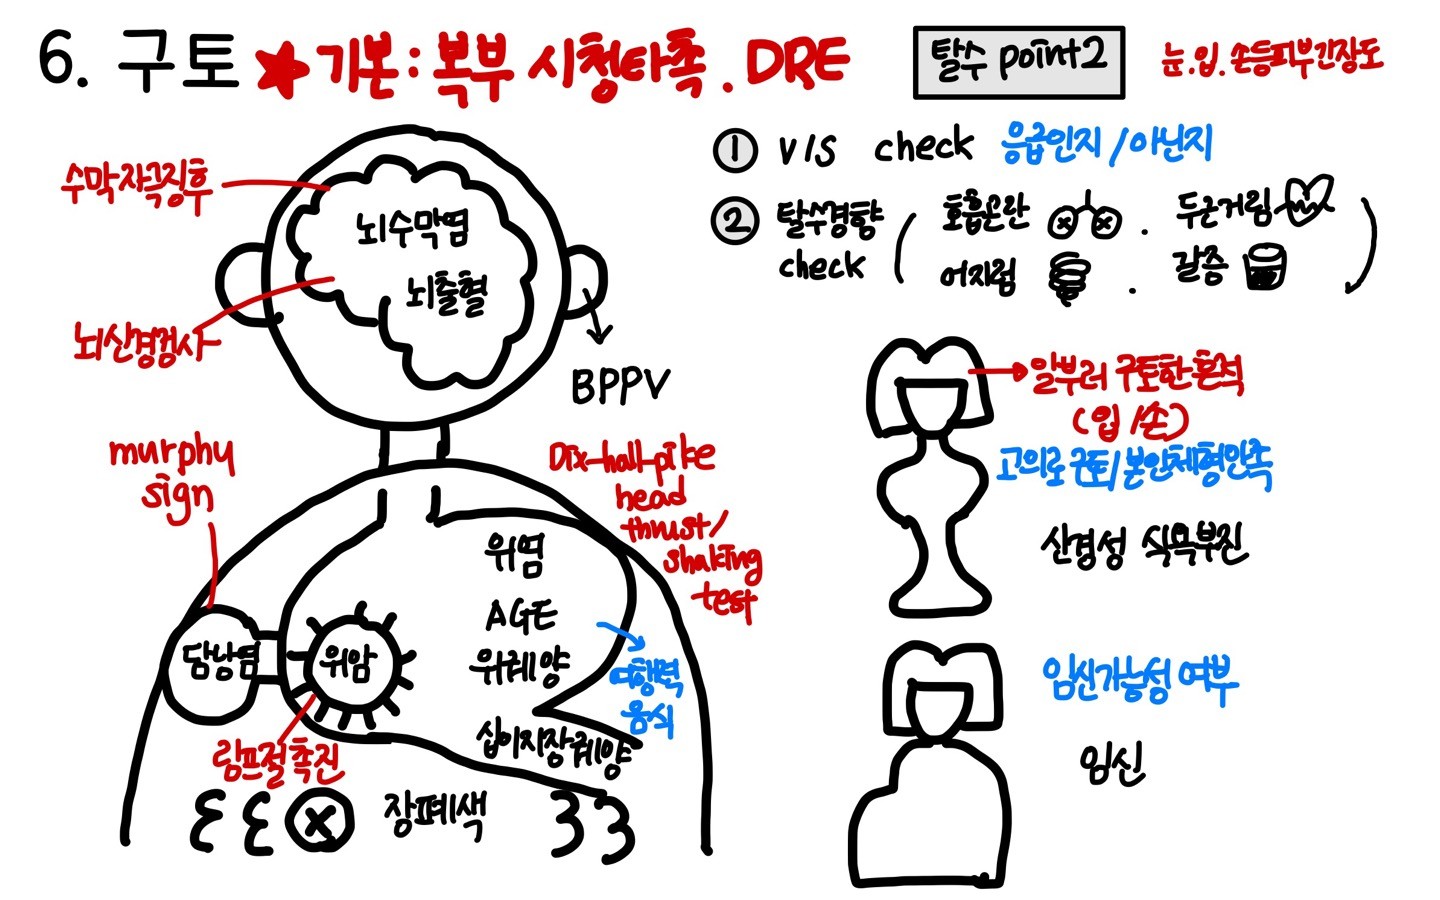 6. 구토 ★ 기본: 복부 시청타촉. DRE
탈수 point2
눈.입.손등피부긴장도
① V/S check 응급인지/아닌지
② 탈수경향 check
( 호흡곤란 . 두근거림
어지럼 . 갈증 )
수막자극징후
뇌수막염
뇌출혈
뇌신경검사
BPPV
Dix-hall-pike
head
thrust/
shaking
test
murphy
sign
위염
AGE
위궤양
여행력
음식
십이지장궤양
담낭염
위암
림프절촉진
장폐색
일부러 구토한흔적
(입/손)
고의로구토/본인체형만족
신경성 식욕부진
임신가능성 여부
임신